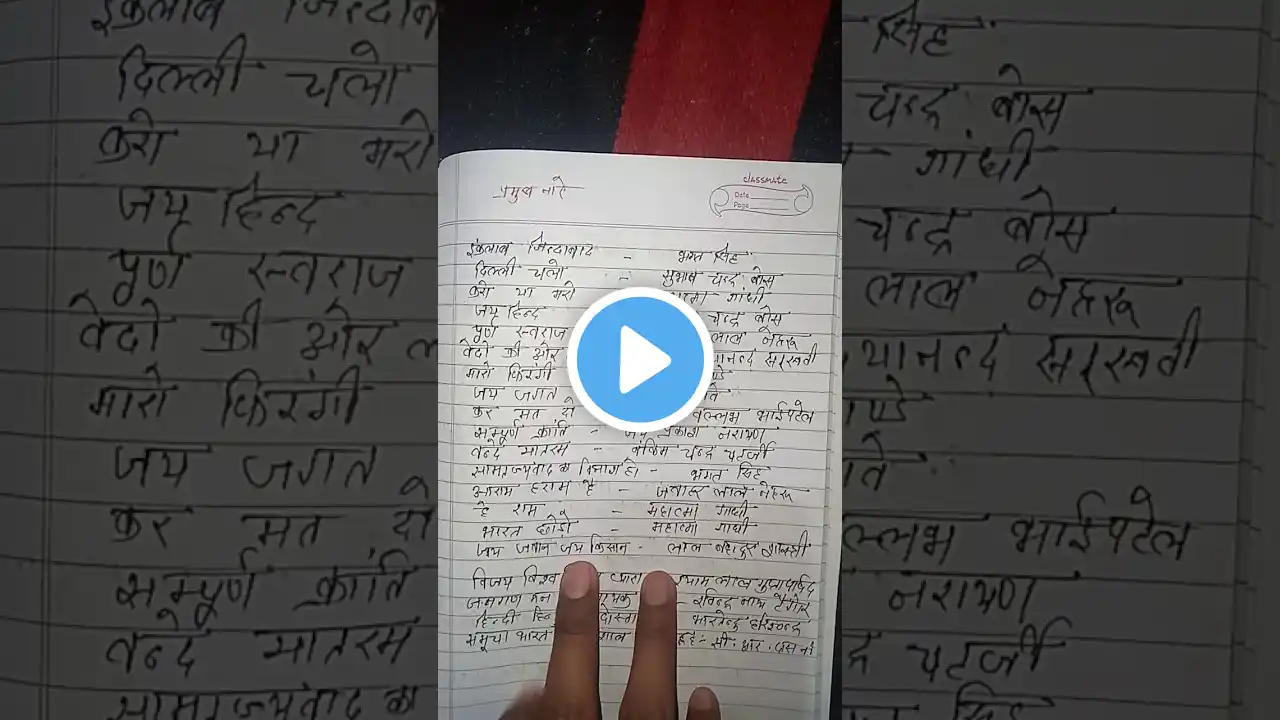 प्रमुख नारे
classmate
Date
Page
इंकलाब जिन्दाबाद - भगत सिंह
दिल्ली चलो - सुभाष चन्द्र बोस
करो या मरो गांधी
जय हिन्द चन्द्र बोस
पूर्ण स्वराज लाल नेहरू
वेदों की ओर सरस्वती
मारो फिरंगी
जय जगत
कर मत दो वल्लभ भाई पटेल
सम्पूर्ण क्रांति - जय प्रकाश नरायण
वन्दे मातरम - बंकिम चन्द्र चटर्जी
साम्राज्यवाद का - भगत सिंह
आराम हराम है - जवाहर लाल नेहरू
हे राम - महात्मा गांधी
भारत छोड़ो - महात्मा गांधी
जय जवान जय किसान - लाल बहादुर शास्त्री
विजय विश्व लाल गुप्त पार्षद
जनगण मन - रविन्द्र नाथ टैगोर
हिन्दी
समूचा भारत है - सी. आर. दास